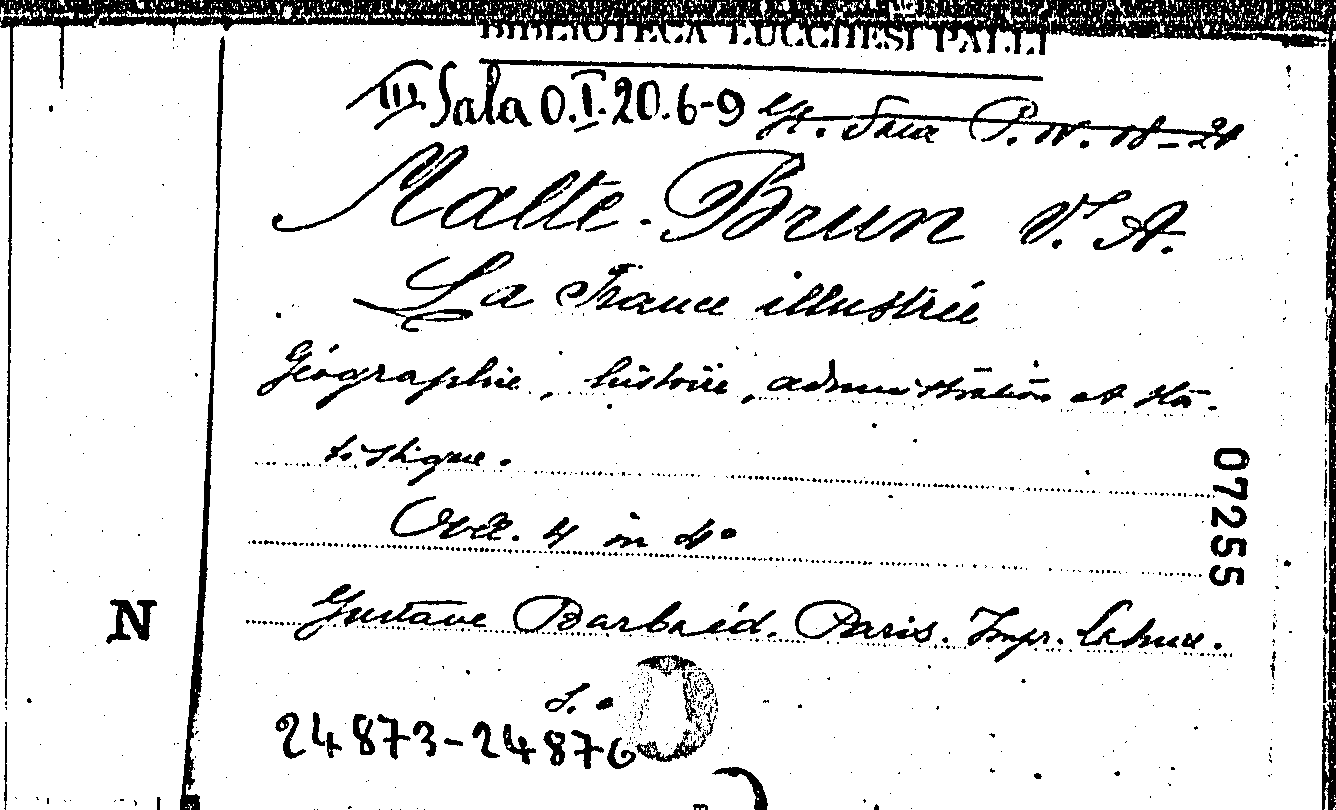 BIBLIOTECA LUCCHESI PALLI
III Sala O.I.20.6-9
Malte-Brun V. A.
La France illustrée
Géographie, histoire, administration et sta-
tistique.
Voll. 4 in 4º
Gustave Barbaéd. Paris. Impr. Lahure.
24873-24876
07255
N